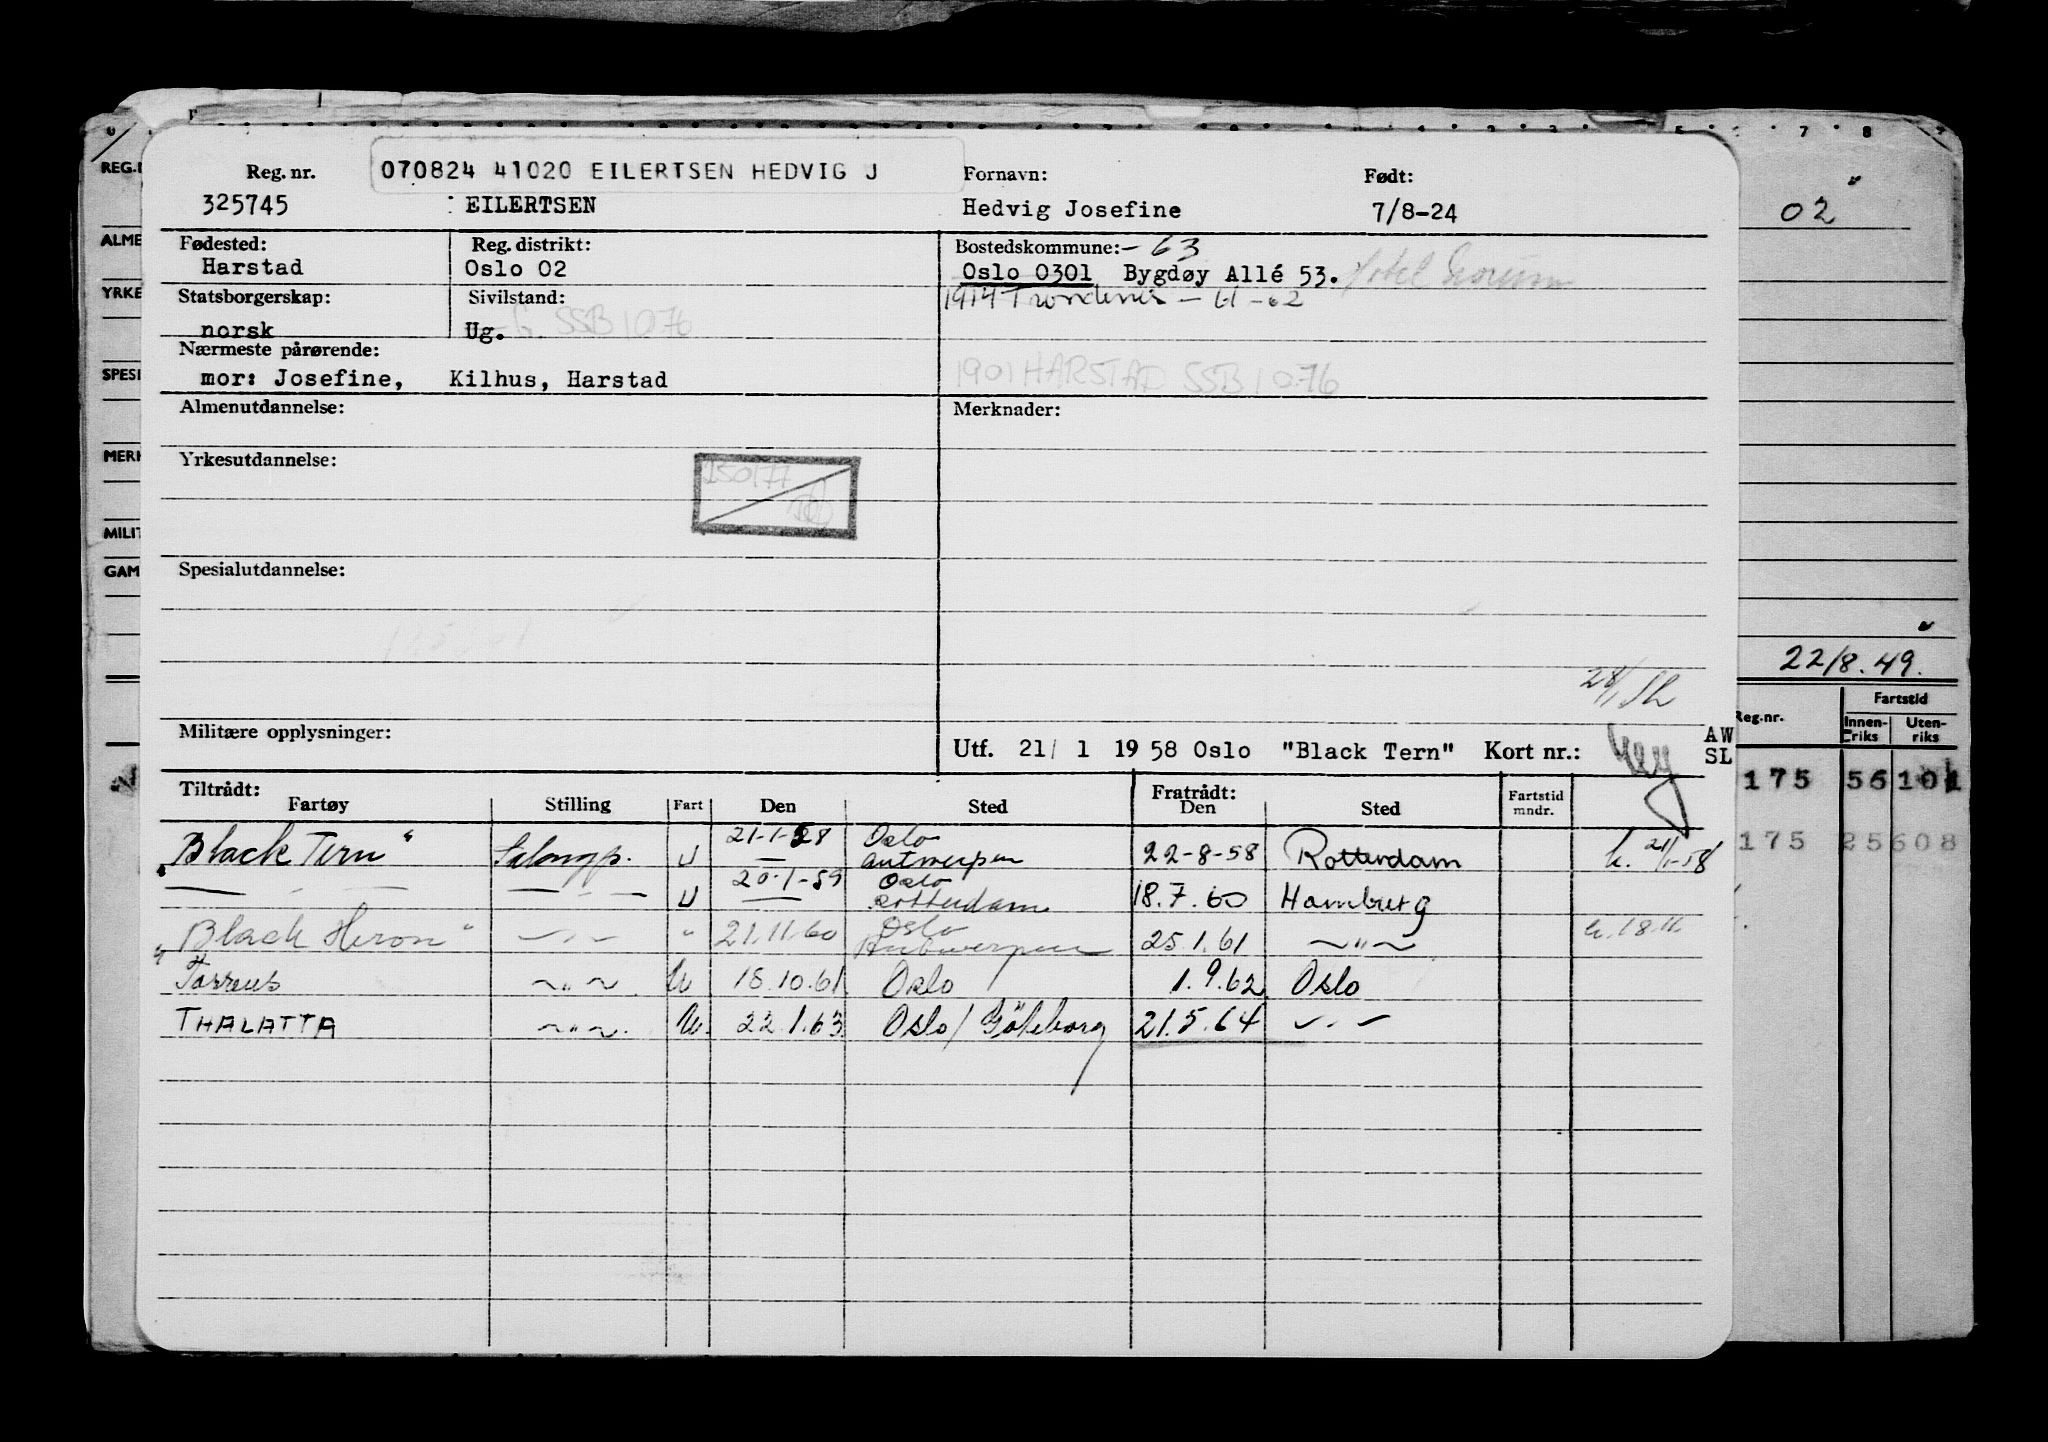 Reg. nr. 070824 41020 EILERTSEN HEDVIG J Fornavn: Født:
325745 EILERTSEN Hedvig Josefine 7/8-24
02
Fødested: Reg. distrikt: Bostedskommune: - 63
Harstad Oslo 02 Oslo 0301 Bygdøy Allé 53. Hotel
Statsborgerskap: Sivilstand: 1914 Trondenes - 61-62
norsk Ug. G. SSB 1076
Nærmeste pårørende:
mor: Josefine, Kilhus, Harstad 1901 HARSTAD SSB 1076
Almenutdannelse: Merknader:
Yrkesutdannelse:
150177
Spesialutdannelse:
22/8.49.
Militære opplysninger: Utf. 21/ 1 1958 Oslo "Black Tern" Kort nr.: AW
SL
Tiltrådt: Fratrådt:
Fartøy Stilling Fart Den Sted Den Sted Fartstid mndr.
"Black Tern" Salongp. U 21-1-58 Oslo Antwerpen 22-8-58 Rotterdam h. 21/1-58
— " — — " — U 20-1-59 Oslo Rotterdam 18.7.60 Hamburg
"Black Heron" — " — " 21.11.60 Oslo Antwerpen 25.1.61 — " — h. 18.11
Tarrens — " — U 18.10.61 Oslo 1.9.62 Oslo
THALATTA — " — U. 22.1.63. Oslo/Göteborg 21.5.64 — " —
REG.
ALME
YRKE
SPESI
MERK
MILIT
GAM
Reg.nr. Fartstid
Innen-riks Uten-riks
175 56 101
175 25 608